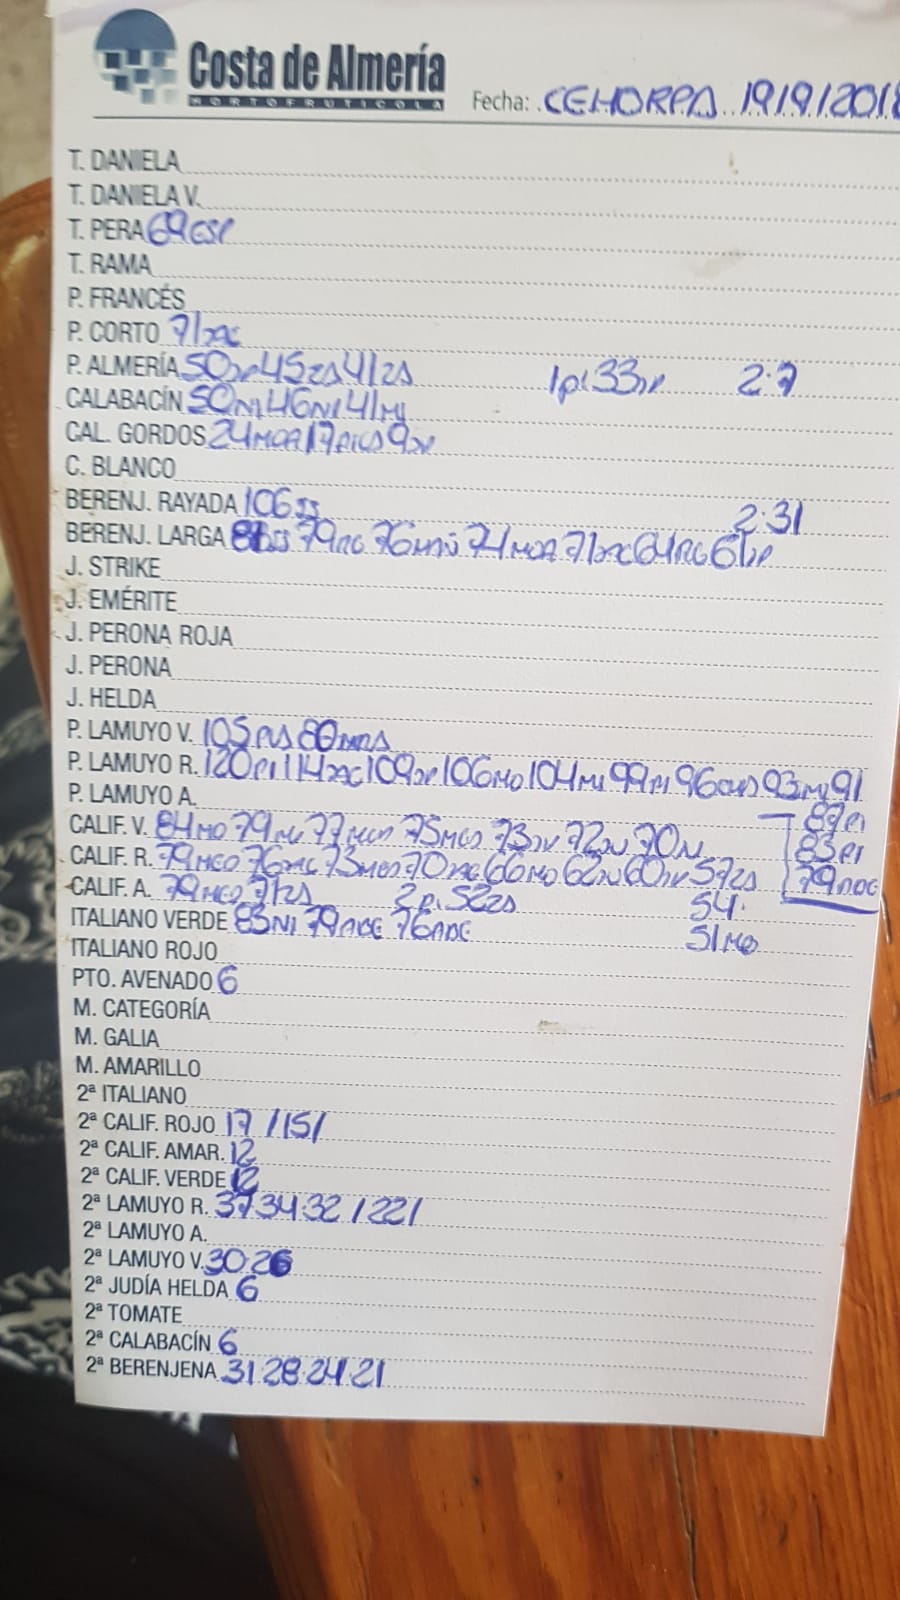 Costa de Almería
HORTOFRUTICOLA
Fecha: CEHORPA 19/9/2018
T. DANIELA
T. DANIELA V.
T. PERA 69ESP
T. RAMA
P. FRANCÉS
P. CORTO 71
P. ALMERÍA 50 45 41 1p. 33 2:7
CALABACÍN 50NI 46NI 41MI
CAL. GORDOS 24MOR 17 9
C. BLANCO
BERENJ. RAYADA 106 2:31
BERENJ. LARGA 79 76 74MOR 71 64 61
J. STRIKE
J. EMÉRITE
J. PERONA ROJA
J. PERONA
J. HELDA
P. LAMUYO V. 105 80
P. LAMUYO R. 120PI 114 109 106MO 104MI 99PI 96 93MI 91
P. LAMUYO A. 89PI
CALIF. V. 84MO 79NI 77 75MCO 73 72 70N 83PI
CALIF. R. 79MCO 76 73MCO 70 66MO 62N 60 57 79
CALIF. A. 79MCO 71 2p. 52 54
ITALIANO VERDE 83NI 79 76 51MO
ITALIANO ROJO
PTO. AVENADO 6
M. CATEGORÍA
M. GALIA
M. AMARILLO
2ª ITALIANO
2ª CALIF. ROJO 17 /15/
2ª CALIF. AMAR. 12
2ª CALIF. VERDE 12
2ª LAMUYO R. 37 34 32 /22/
2ª LAMUYO A.
2ª LAMUYO V. 30 26
2ª JUDÍA HELDA 6
2ª TOMATE
2ª CALABACÍN 6
2ª BERENJENA 31 28 24 21